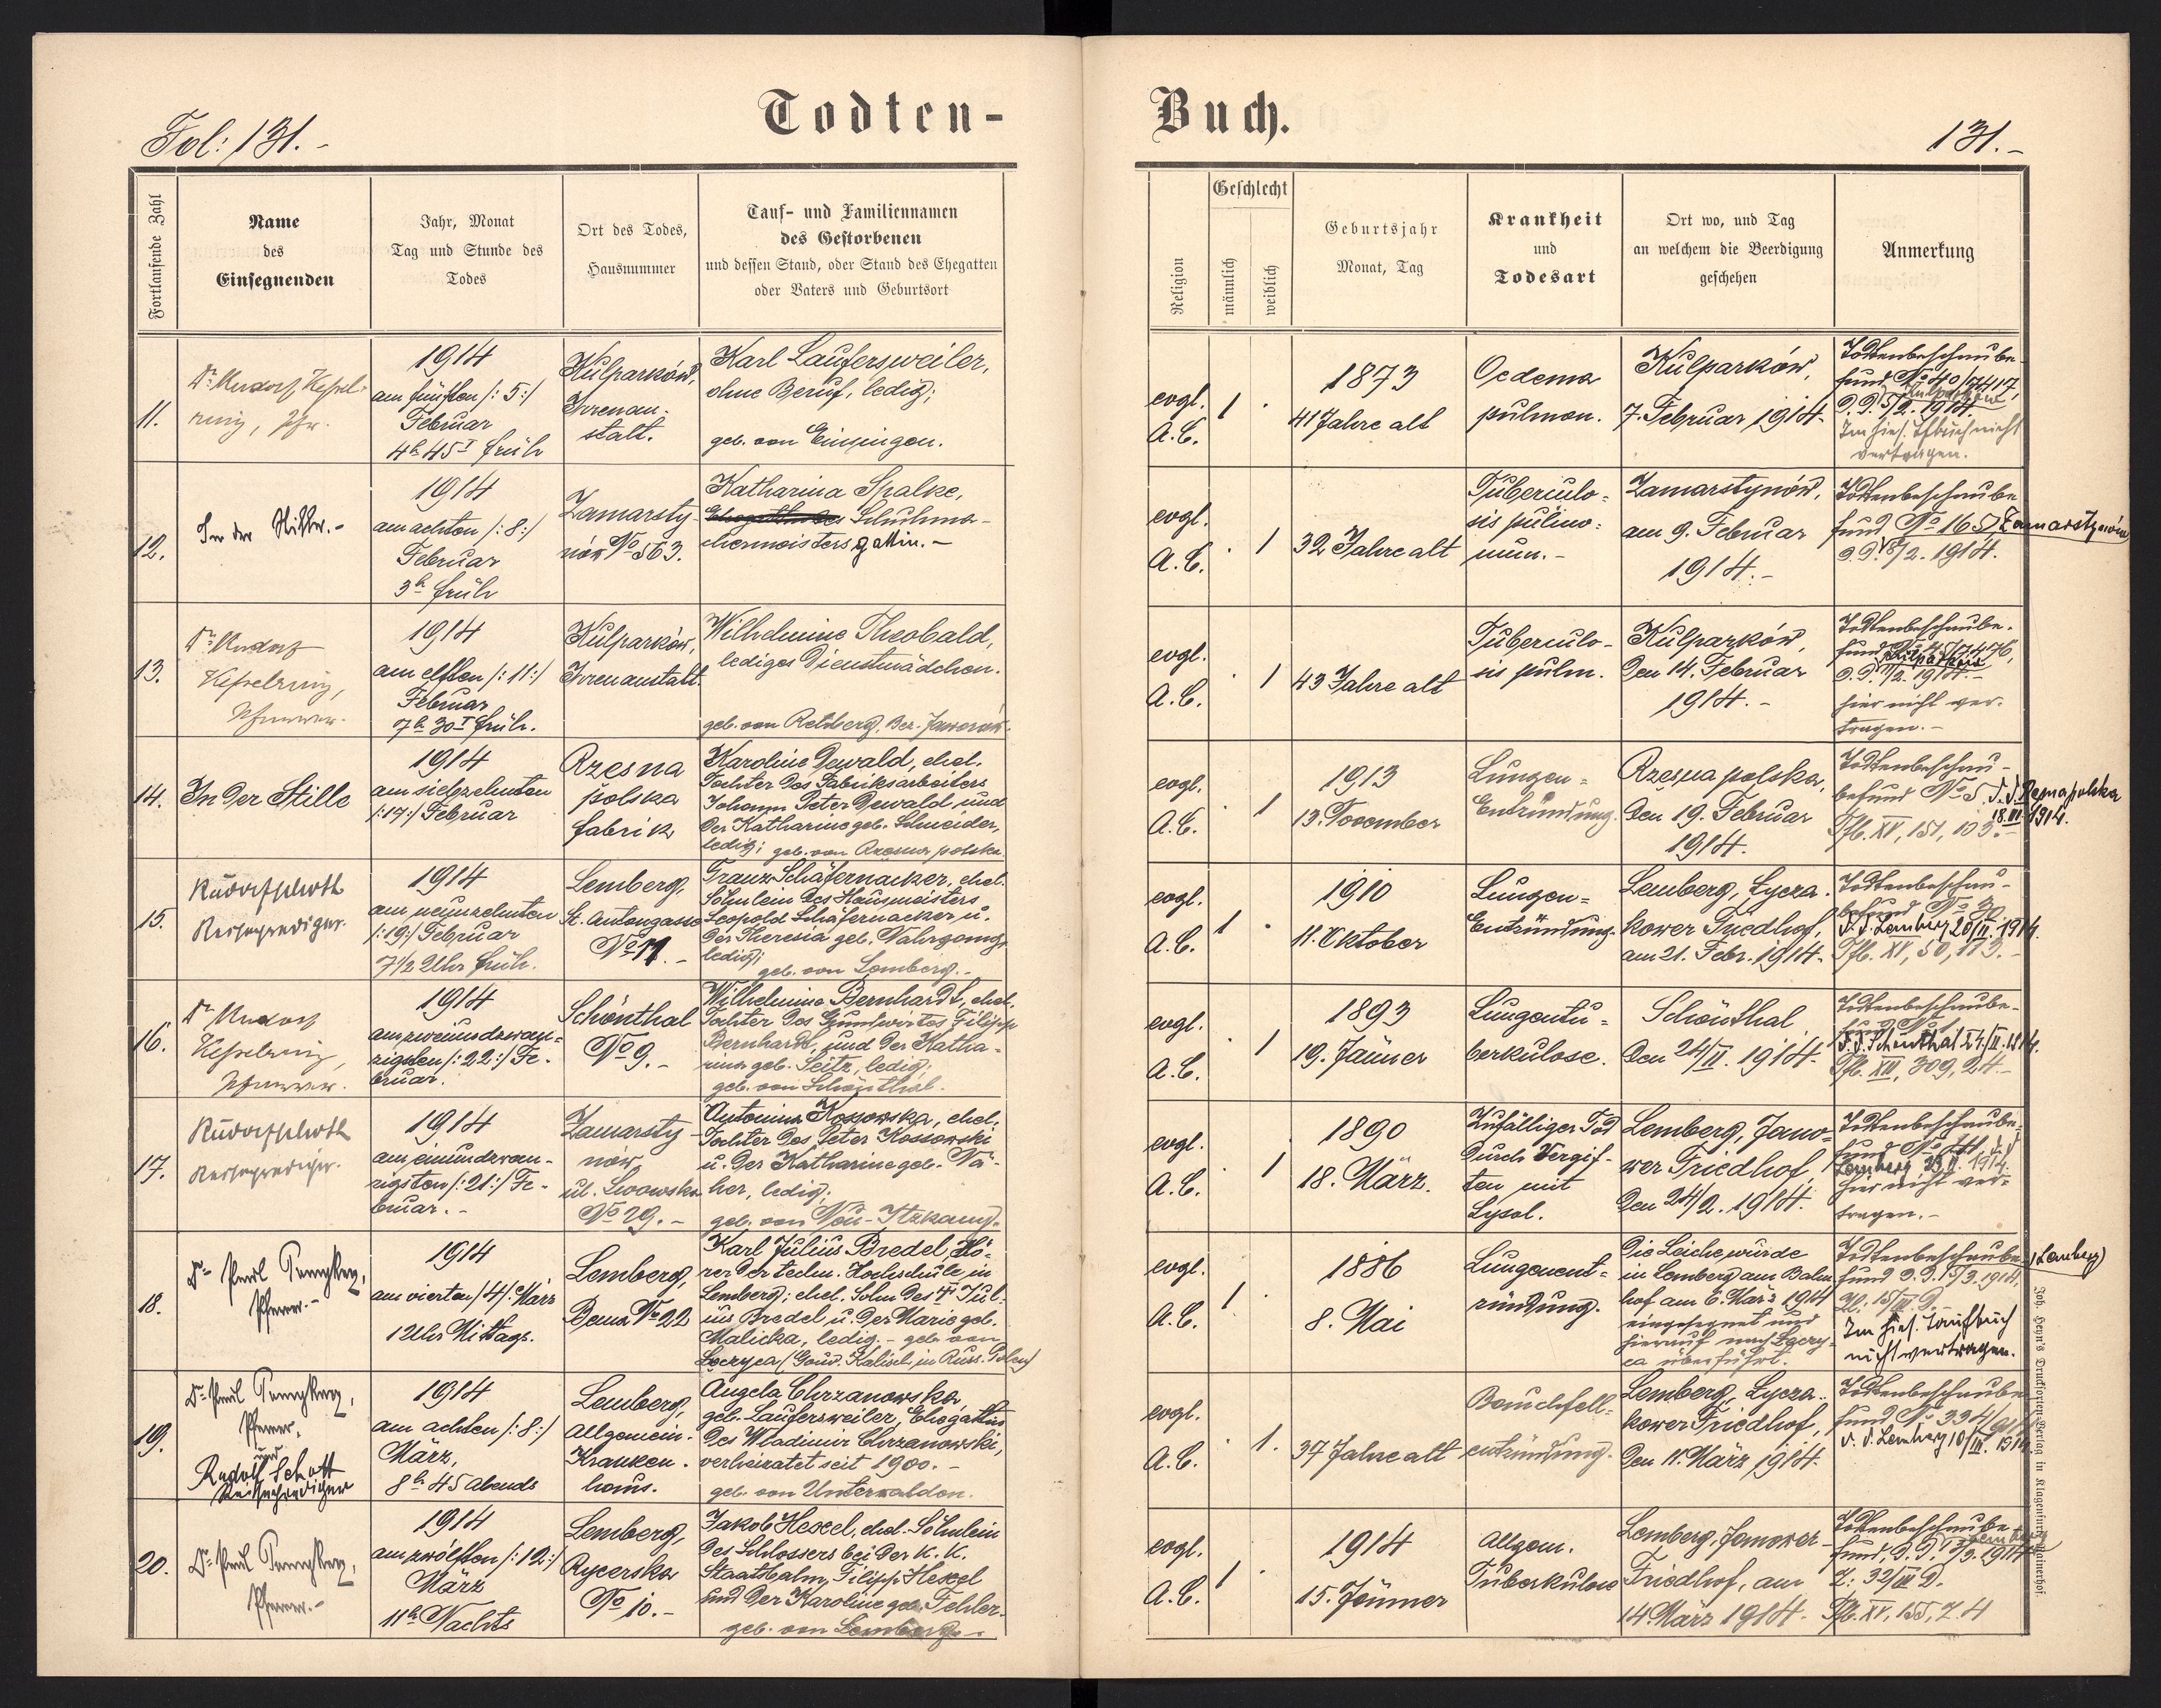 Todten-
Buch.
Fol: 131.-
131.-
Fortlaufende Zahl
Name
des
Einsegnenden
Jahr, Monat
Tag und Stunde des
Todes
Ort des Todes,
Hausnummer
Tauf- und Familiennamen
des Gestorbenen
und dessen Stand, oder Stand des Ehegatten
oder Vaters und Geburtsort
Religion
Geschlecht
männlich
weiblich
Geburtsjahr
Monat, Tag
Krankheit
und
Todesart
Ort wo, und Tag
an welchem die Beerdigung
geschehen
Anmerkung
11.
Dr. Rudolf Kessel-
ring, Pfr.
1914
am fünften /:5:/
Februar
4h 45I früh
Kulparków,
Irrenan-
stalt.
Karl Laufersweiler,
ohne Beruf, ledig;
geb. von Einsingen.
evgl.
A.C.
1
1873
41 Jahre alt
Oedema
pulmon.
Kulparków,
7. Februar 1914.
Todtenbeschaube-
fund No 40/7417,
Kulparków
d.d. 5/2. 1914.
Im hies. Tfbuch nicht
vertragen.
12.
In der Stille.-
1914
am achten /:8:/
Februar
3h früh
Zamarsty-
nów No 563.
Katharina Spalke,
Schuhma-
chermeisters gattin.-
evgl.
A.C.
1
32 Jahre alt
Tuberculo-
sis pulmo-
num.-
Zamarstynów,
am 9. Februar
1914.-
Todtenbeschaube-
fund No 165 Zamarstynów
d.d. 8/2. 1914.
13.
Dr. Rudolf
Kesselring,
Pfarrer.
1914
am elften /:11:/
Februar
7h 30I früh.
Kulparków,
Irrenanstalt.
Wilhelmine Theobald,
lediges Dienstmädchen.
geb. von Rehberg, Bez. Jaworów.
evgl.
A.C.
1
43 Jahre alt
Tuberculo-
sis pulm.
Kulparków,
den 14. Februar
1914.-
Todtenbeschaube-
Kulparków
hier nicht ver-
tragen.-
14.
In der Stille
1914
am siebzehnten
/:17:/ Februar
Rzesna
polska
fabrik
Karoline Dewald, ehel.
Tochter des Fabriksarbeiters
Johann Peter Dewald und
der Katharine geb. Schneider,
ledig; geb. von Rzesna polska
evgl.
A.C.
1
1913
13. November
Lungen-
Entzündung.
Rzesna polska,
den 19. Februar
1914.
Todtenbeschau-
befund No 5, d.d. Rzesna polska
18.III 1914.
Tfb. XV, 151, 103.-
15.
Rudolf Schott
Reiseprediger.
1914
am neunzehnten
/:19:/ Februar
7 1/2 Uhr früh.
Lemberg,
St. Antongasse
No 11.-
Franz Schäfernacker, ehel.
Söhnlein des Hausmeisters
Leopold Schäfernacker u.
der Theresia geb. Nahrgang,
ledig;
geb. von Lemberg.-
evgl.
A.C.
1
1910
11. Oktober
Lungen-
Entzündung.
Lemberg, Lycza-
kower Friedhof,
am 21. Febr. 1914.
Todtenbeschau-
befund No 30
d.d. Lemberg 20/II. 1914.
Tfb. XV, 50, 173.-
16.
Dr. Rudolf
Kesselring,
Pfarrer.
1914
am zweiundzwan-
zigsten /:22:/ Fe-
bruar.
Schönthal
No 9.-
Wilhelmine Bernhardt, ehel.
Tochter des Grundwirtes Filipp
Bernhardt, und der Katha-
rina geb. Seitz, ledig;
geb. von Schönthal.
evgl.
A.C.
1
1893
19. Jänner
Lungentu-
berkulose.
Schönthal
den 24/II. 1914.
Todtenbeschaube-
fund No 1
d.d. Schönthal 24/II. 1914.
Tfb. XII, 309, 24.-
17.
Rudolf Schott
Reiseprediger.
1914
am einundzwan-
zigsten /:21:/ Fe-
bruar.-
Zamarsty-
nów
ul. Lwowska
No 29.-
Antonina Kossowska, ehel.
Tochter des Peter Kossowski
u. der Katharine geb. Vä-
her, ledig;
geb. von Neu-Itzkany.
evgl.
A.C.
1
1890
18. März.
Zufälliger Tod
durch Vergif-
ten mit
Lysol.
Lemberg, Jano-
wer Friedhof,
den 24/2. 1914.
Todtenbeschaube-
Lemberg 23 II. 1914.
hier nicht ver-
tragen.-
18.
Pfarrer.-
1914
am vierten /:4/: März
1 Uhr Mittags.
Lemberg,
Bema No 22
Karl Julius Bredel, Hö-
rer der techn. Hochschule in
Lemberg; ehel. Sohn des † Jul-
ius Bredel u. der Marie geb.
Malicka, ledig.- geb. von
Łęczyca (Gouv. Kalisch, in Russ. Polen)
evgl.
A.C.
1
1886
8. Mai
Lungenent-
zündung.
Die Leiche wurde
in Lemberg am Bahn-
hof am 6. März 1914
eingesegnet und
hierauf nach Łęczy-
ca überführt.
Todtenbeschaube- (Lemberg)
fund d.d. 5/3. 1914.
Zl. 15/III D.
Im hies. Taufbuch
nicht vertragen.
19.
Pfarrer,
und
Rudolf Schott
Reiseprediger
1914
am achten /:8:/
März,
8h 45 abends
Lemberg,
Allgemein.
Kranken-
haus.
Angela Chrzanowska,
geb. Laufersweiler, Ehegattin
des Wladimir Chrzanowski,
verheiratet seit 1900.-
geb. von Unterwalden.
evgl.
A.C.
1.
37 Jahre alt
Bauchfell-
entzündung.
Lemberg, Lycza-
kower Friedhof,
den 11. März 1914.
Todtenbeschaube-
fund No 334/914
d.d. Lemberg 10/III. 1914.
20.
Pfarrer.-
1914
am zwölften /:12:/
März
11h Nachts
Lemberg,
Rycerska
No 10.-
Jakob Hexel, ehel. Söhnlein
des Schlossers bei der K. K.
Staatsbahn, Filipp Hexel
und der Karoline geb. Fehler.
geb. von Lemberg.-
evgl.
A.C.
1
1914
15. Jänner
Allgem.
Tuberkulose
Lemberg, Janower-
Friedhof, am
14. März 1914.
Todtenbeschaube-
Lemberg
Z.: 32/III D.
Tfb. XV, 155, Z. 4
Joh. Heyn's Drucksorten-Verlag in Klagenfurt